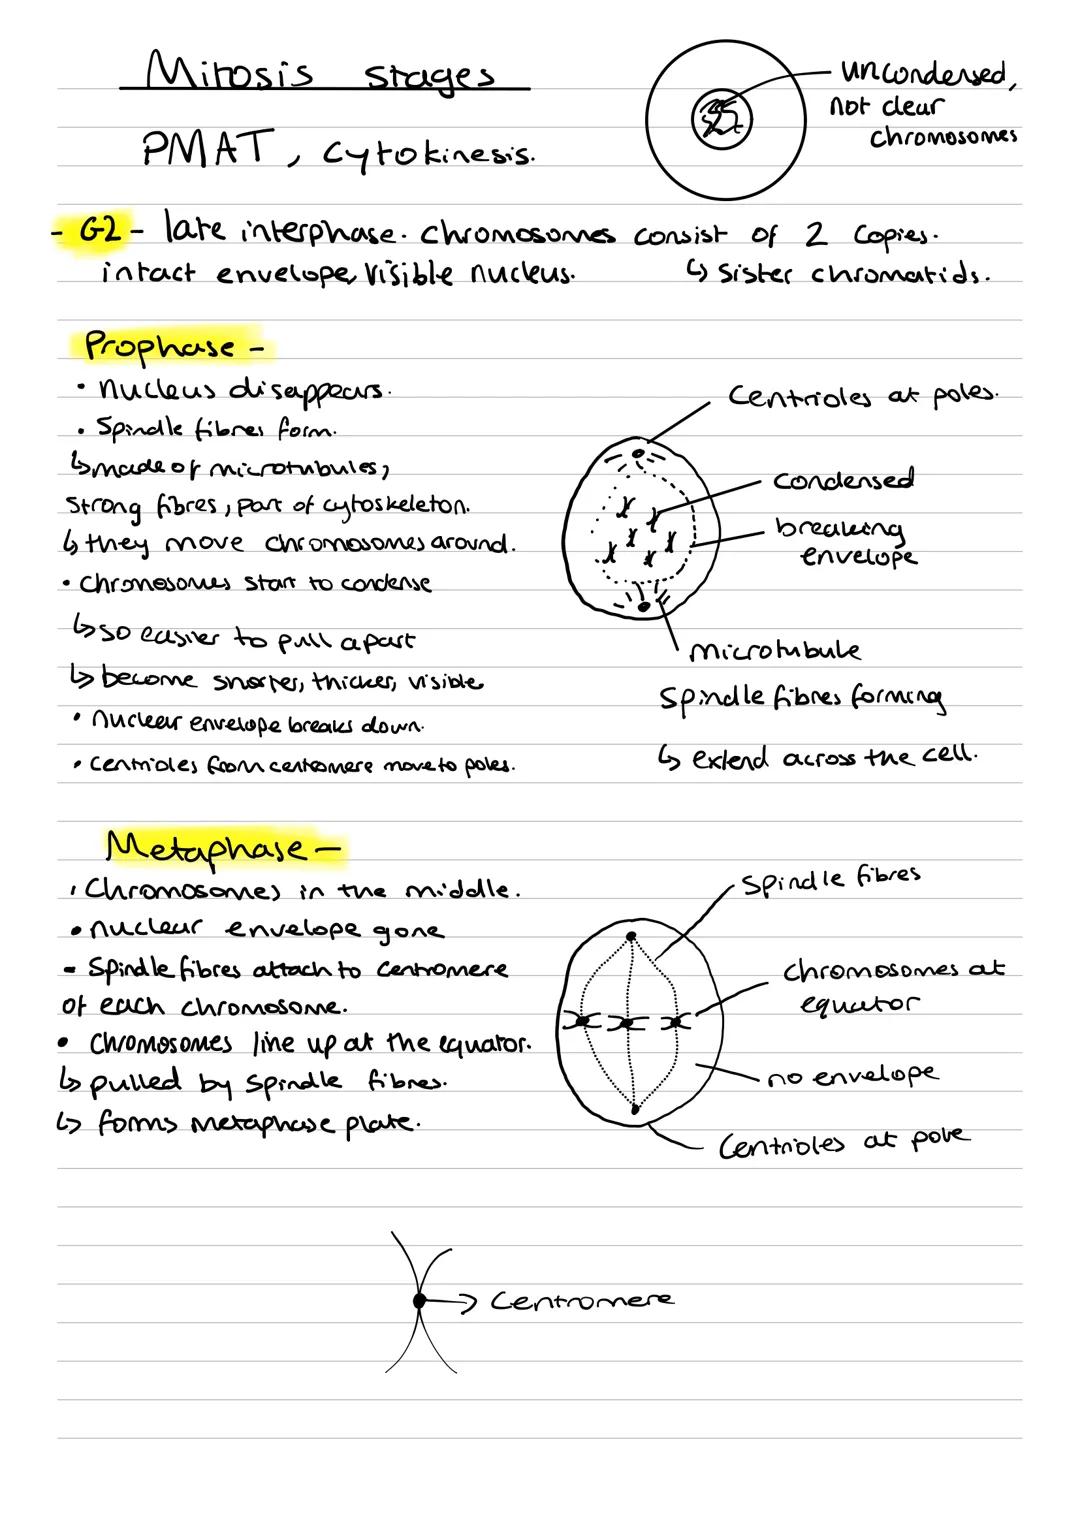 Mitosis stages
uncondensed,
not clear
chromosomes
PMAT, cytokinesis.
- G2 - late interphase. Chromosomes consist of 2 copies.
intact envelope, visible nucleus. ↳ sister chromatids.
Prophase -
• nucleus disappears.
• Spindle fibres form.
↳ made of microtubules,
strong fibres, part of cytoskeleton.
↳ they move chromosomes around.
• Chromosomes start to condense
↳ so easier to pull apart
↳ become shorter, thicker, visible
• nuclear envelope breaks down.
• centrioles from centromere move to poles.
Centrioles at poles.
condensed
breaking
envelope
microtubule
Spindle fibres forming
↳ extend across the cell.
Metaphase -
• Chromosomes in the middle.
• nuclear envelope gone
- Spindle fibres attach to centromere
of each chromosome.
• Chromosomes line up at the equator.
↳ pulled by spindle fibres.
↳ forms metaphase plate.
Spindle fibres
chromosomes at
equator
no envelope
Centrioles at pole
→ Centromere